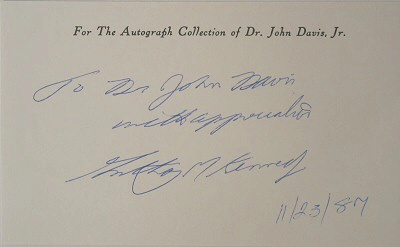 For The Autograph Collection of Dr. John Davis, Jr.
To Dr John Davis
with appreciation
Anthony M Kennedy
11/23/87